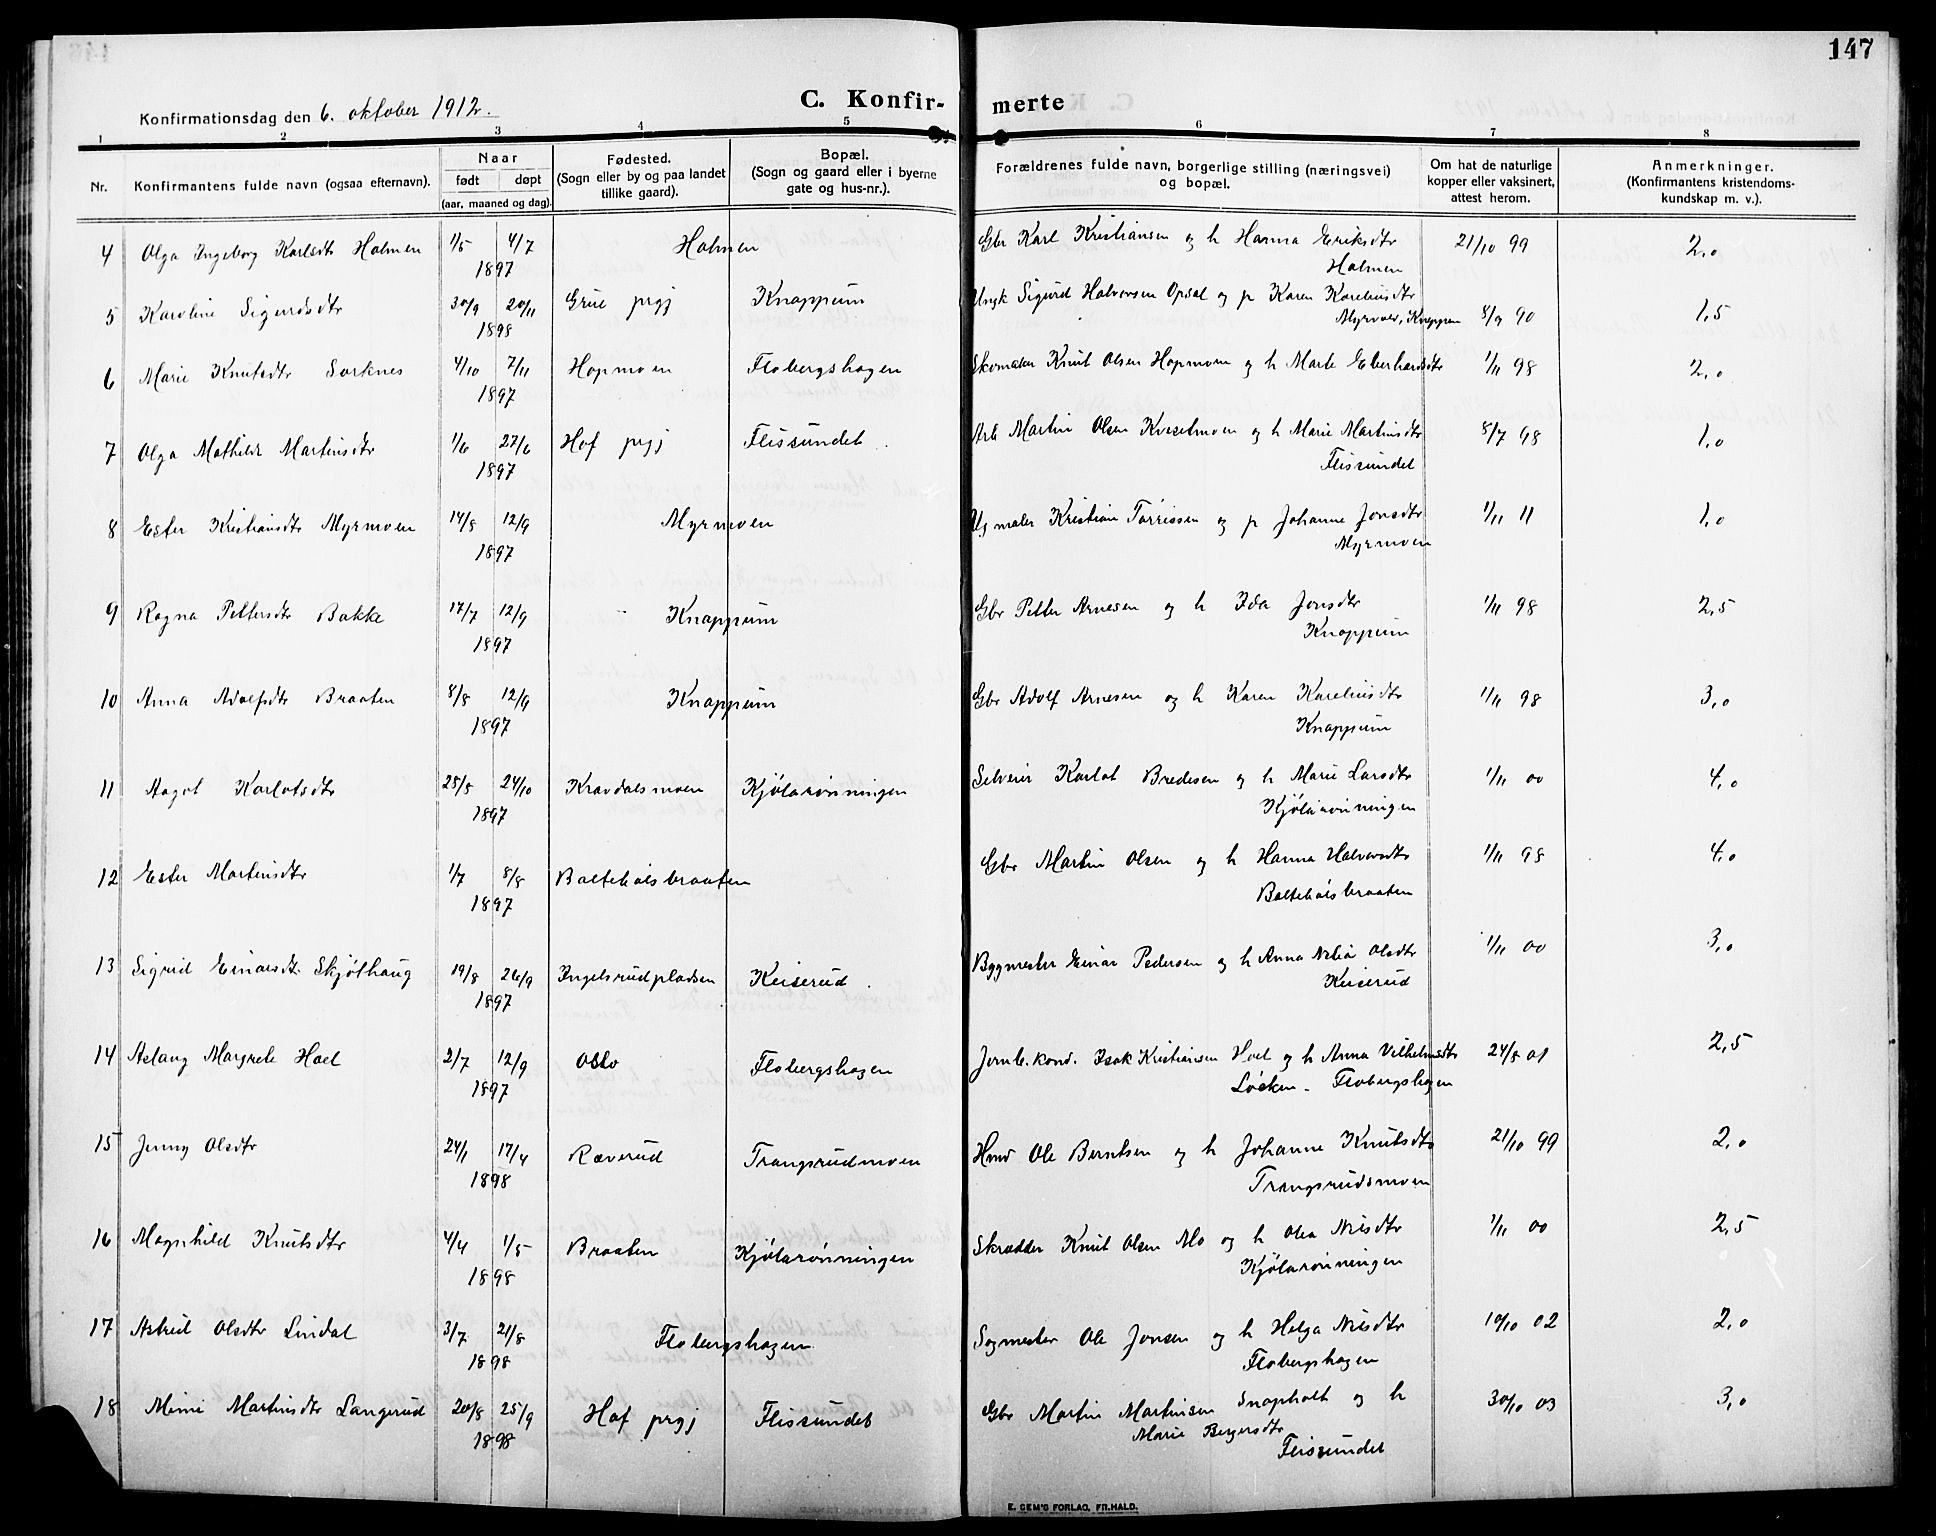 147
Konfirmationsdag den 6. oktober 1912.
C. Konfir-
merte
1 2 3 4 5 6 7 8
Nr.
Konfirmantens fulde navn (ogsaa efternavn).
Naar
født døpt
(aar, maaned og dag).
Fødested.
(Sogn eller by og paa landet
tillike gaard).
Bopæl.
(Sogn og gaard eller i byerne
gate og hus-nr.).
Forældrenes fulde navn, borgerlige stilling (næringsvei)
og bopæl.
Om hat de naturlige
kopper eller vaksinert,
attest herom.
Anmerkninger.
(Konfirmantens kristendoms-
kundskap m. v.).
4 Olga Ingeborg Karlsdtr Holmen 1/5 4/7 Holmen Gbr Karl Kristiansen og h Hanna Eriksdtr 21/10 99 2,0
1897 Holmen
5 Karoline Sigurdsdtr 30/9 20/11 Grue prgj Knappum Ungk Sigurd Halvorsen Opsal og p Karen Kareliusdtr 8/9 90 1,5
1898 Myrvold, Knappen
6 Marie Knutsdtr Sorknes 4/10 7/11 Hopmoen Flobergshagen Skomaker Knut Olsen Hopmoen og h Marte Eberhardsdtr 1/11 98 2,0
1897
7 Olga Mathilde Martinsdtr 1/6 27/6 Hof prgj Flissundet Arb Martin Olsen Kvesetmoen og h Marie Martinsdtr 8/7 98 1,0
1897 Flissundet
8 Ester Kristiansdtr Myrmoen 14/8 12/9 Myrmoen Ug maler Kristian Torrissen og p Johanne Jonsdtr 1/11 11 1,0
1897 Myrmoen
9 Ragna Pettersdtr Bakke 17/7 12/9 Knappum Gbr Petter Arnesen og h Ida Jonsdtr 1/11 98 2,5
1897 Knappum
10 Anna Adolfsdtr Braaten 8/8 12/9 Knappum Gbr Adolf Arnesen og h Karen Kareliusdtr 1/11 98 3,0
1897 Knappum
11 Aagot Karlotsdtr 25/8 24/10 Kravdalsmoen Kjølarønningen Selveier Karlot Bredesen og h Marie Larsdtr 1/11 00 4,0
1897 Kjølarønningen
12 Ester Martinsdtr 1/7 8/8 Baltehølsbraaten Gbr Martin Olsen og h Hanna Halvorsdtr 1/11 98 4,0
1897 Baltehølsbraaten
13 Sigrid Einarsdtr. Skjølhaug 19/8 26/9 Ingelsrudpladsen Keiserud Byggmester Einar Pedersen og h Anna Nelia Olsdtr 1/11 00 3,0
1897 Keiserud
14 Aslaug Margrete Hoel 2/7 12/9 Oslo Flobergshagen Jernb. kond. Isak Kristiansen Hoel og h Anna Vilhelmsdtr 24/8 01 2,5
1897 Løcken - Flobergshagen
15 Jenny Olsdtr 24/1 17/4 Ræverud Trangsrudmoen Hmd Ole Berntsen og h Johanne Knutsdtr 21/10 99 2,0
1898 Trangsrudsmoen
16 Magnhild Knutsdtr 4/4 1/5 Braaten Kjølarønningen Skrædder Knut Olsen Mo og h Olea Nilsdtr 1/11 00 2,5
1898 Kjølarønningen
17 Astrid Olsdtr Lindal 3/7 21/8 Flobergshagen Sagmester Ole Jonsen og h Helga Nilsdtr 10/10 02 2,0
1898 Flobergshagen
18 Mimi Martinsdtr Langerud 20/8 25/9 Hof prgj Flissundet Gbr Martin Martinsen Snapholt og h 30/10 03 3,0
1898 Marie Bergersdtr
Flissundet
E. SEM'S FORLAG, FR.HALD.